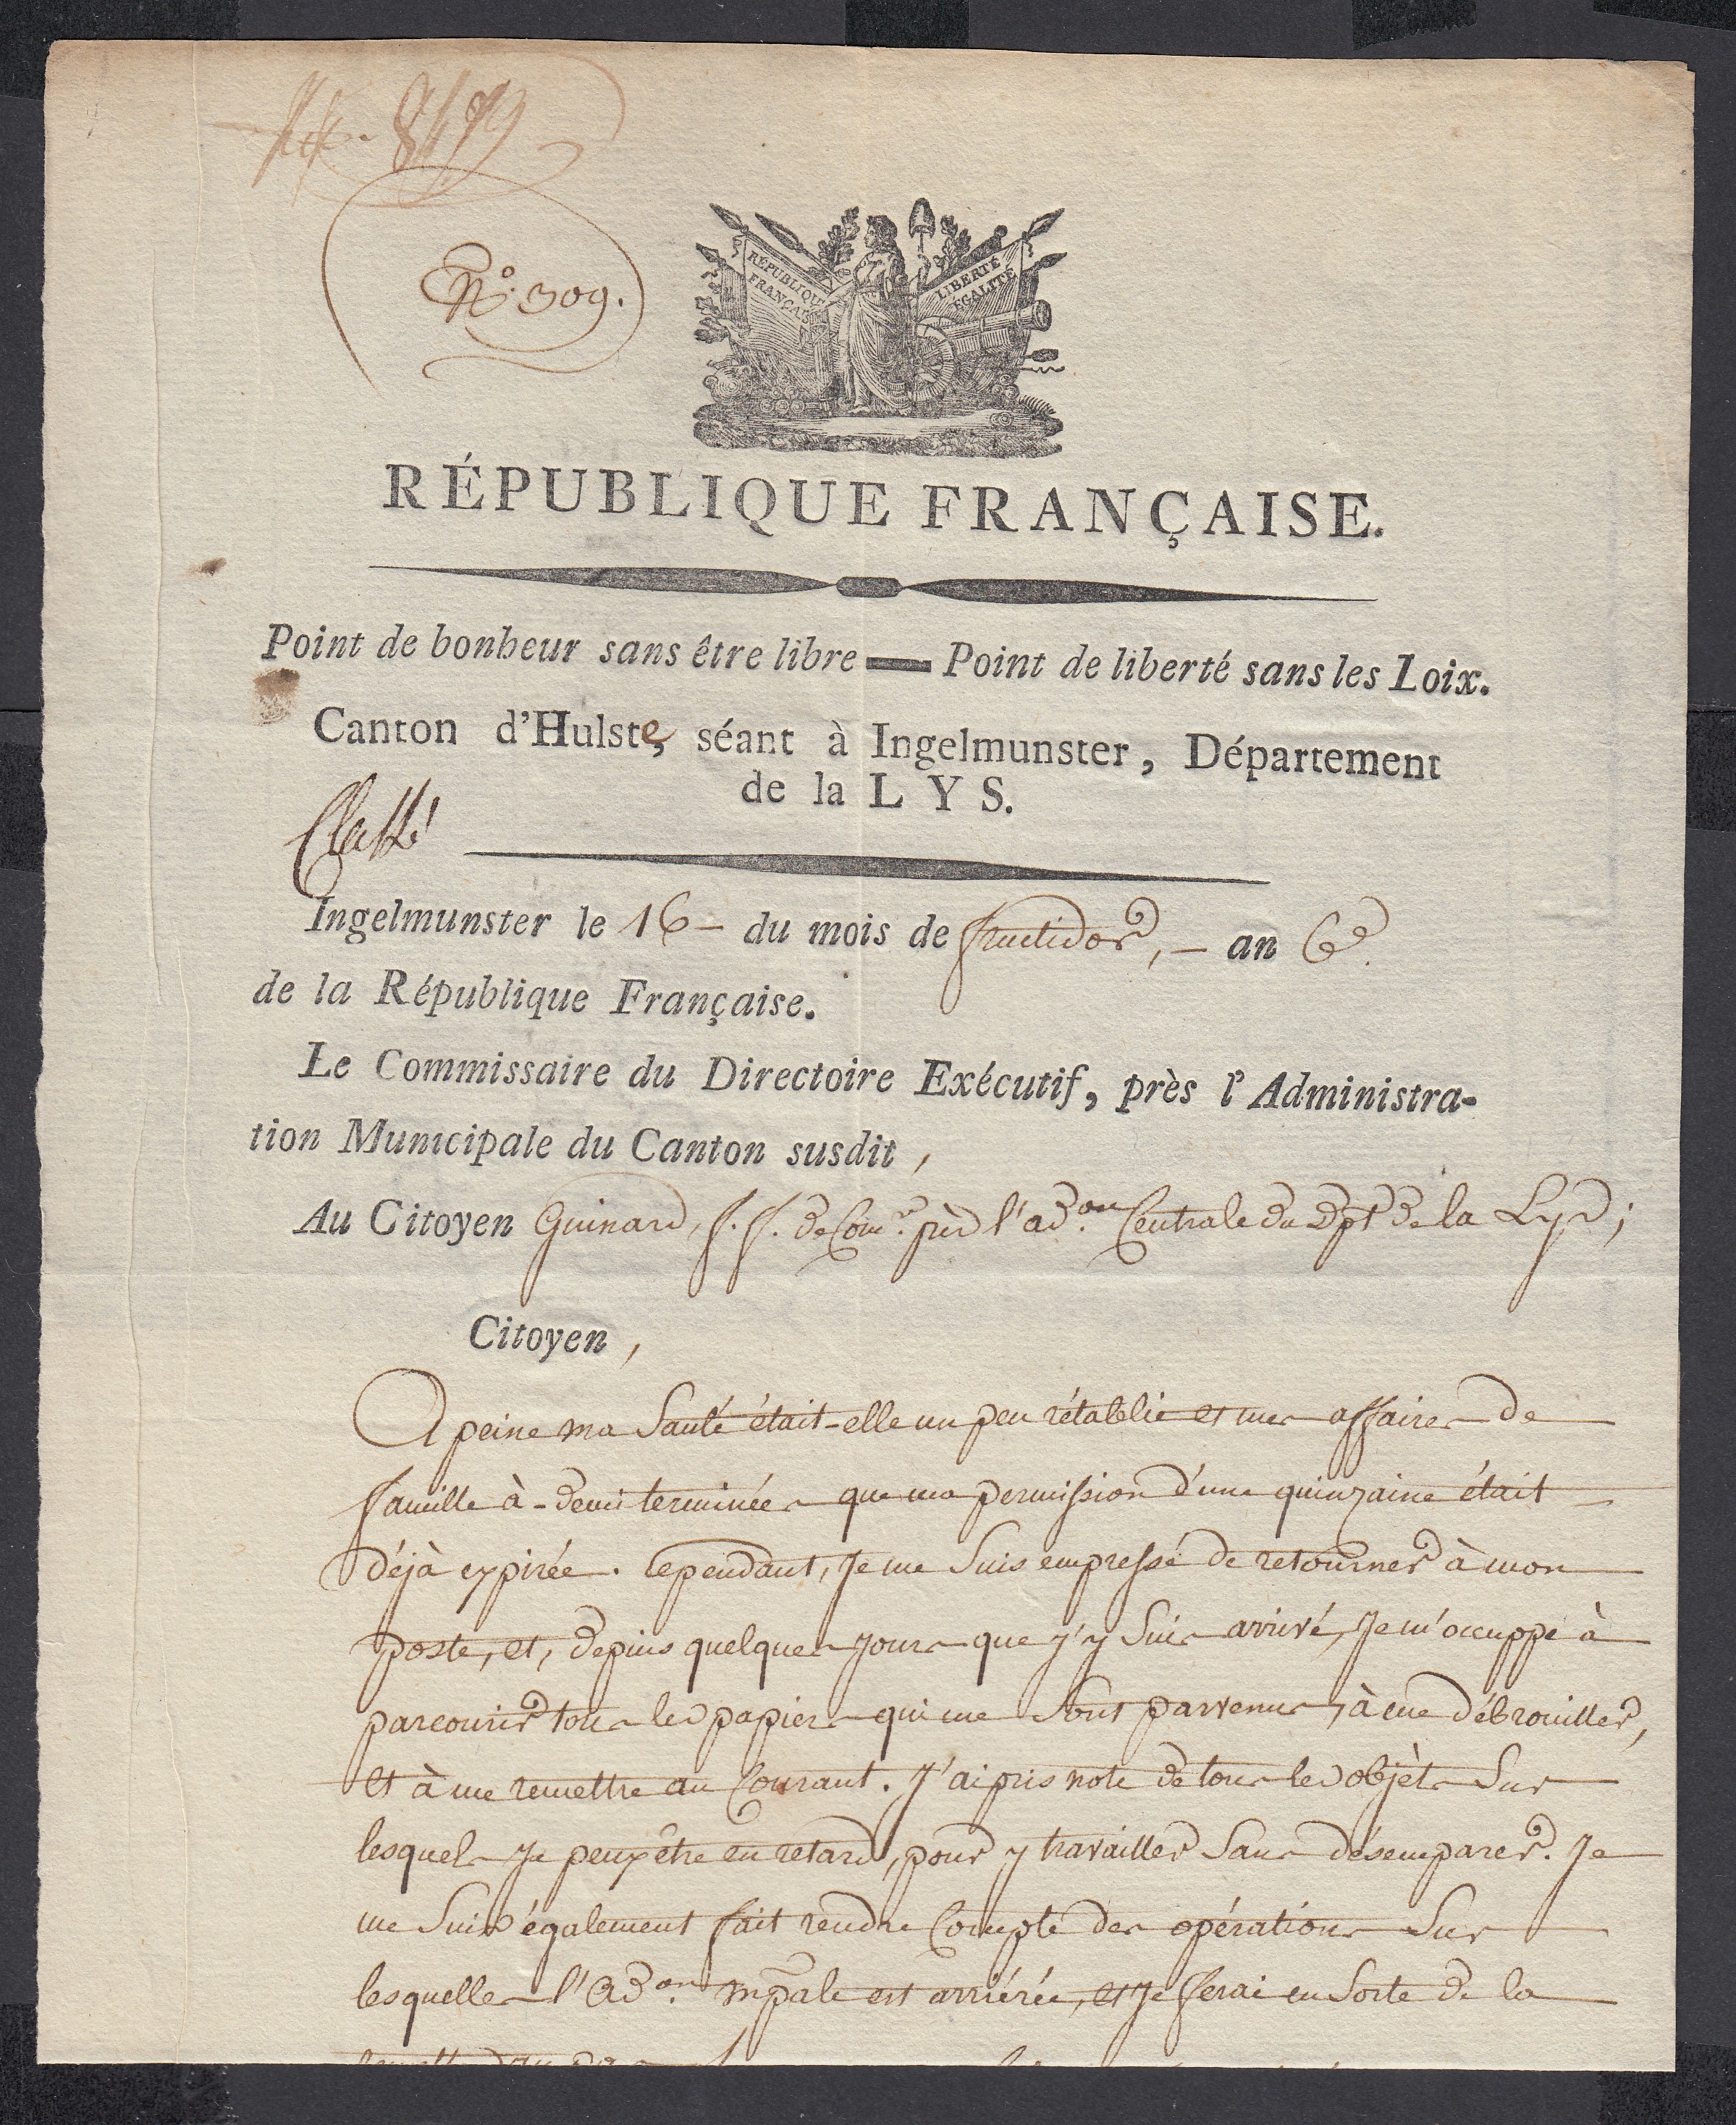 8479
N.º 309.
RÉPUBLIQUE FRANÇAIS
LIBERTÉ ÉGALITÉ
RÉPUBLIQUE FRANÇAISE.
Point de bonheur sans être libre — Point de liberté sans les Loix.
Canton d'Hulste, séant à Ingelmunster, Département
de la LYS.
Classé
Ingelmunster le 16 - du mois de fructidor, - an 6e.
de la République Française.
Le Commissaire du Directoire Exécutif, près l'Administra-
tion Municipale du Canton susdit,
Au Citoyen Guinard, f. f. de Comre. près l'adon. Centrale du Dpt de la Lys;
Citoyen,
A peine ma Santé était-elle un peu rétablie et mes affaires de
famille à-demi terminées que ma permission d'une quinzaine était
déjà expirée. Cependant, Je me Suis empressé de retourner à mon
poste, et, depuis quelques jours que j'y Suis arrivé, Je m'occuppe à
parcourir tous les papiers qui me Sont parvenus, à me débrouiller,
et à me remettre au Courant. J'ai pris note de tous les objèts Sur
lesquels Je peux être en retard, pour y travailler Sans désemparer. Je
me Suis également fait rendre Compte des opérations Sur
lesquelles l'Adon. mpale est arriérée, et Je ferai en Sorte de la